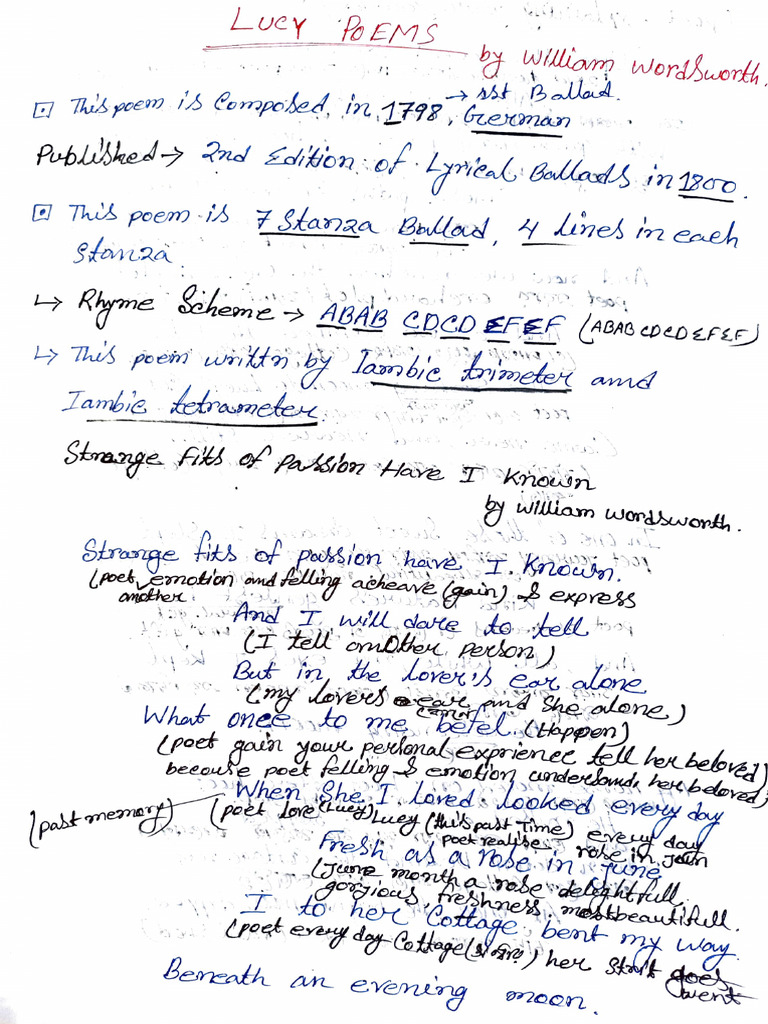 LUCY POEMS
by William Wordsworth.
→ sst Ballad.
This poem is Composed in 1798, German
Published → 2nd Edition of Lyrical Ballads in 1800.
This poem is 7 Stanza Ballad, 4 lines in each
Stanza
↳ Rhyme Scheme → ABAB CDCD EFEF (ABAB CDCD EFEF)
↳ This poem writtn by Iambic trimeter and
Iambic tetrameter.
Strange Fits of Passion Have I Known
by William Wordsworth.
Strange fits of passion have I Known.
(poet emotion and felling acheave (gain) & express
another
And I will dare to tell
(I tell another person)
But in the lover's ear alone
(my lovers ear and she alone)
What once to me befel. (Happen)
(poet gain your personal exprience tell her beloved)
because poet felling & emotion understand her beloved)
When She I loved looked every day
(past memory) (poet love (Lucy) Lucy (this past Time) every day
poet realise rose in jun
Fresh as a rose in june
(June month a rose delightfull,
gorgious, freshness, mostbeautifull.
I to her Cottage bent my way
(poet every day Cottage her goes
went
Beneath an evening moon.